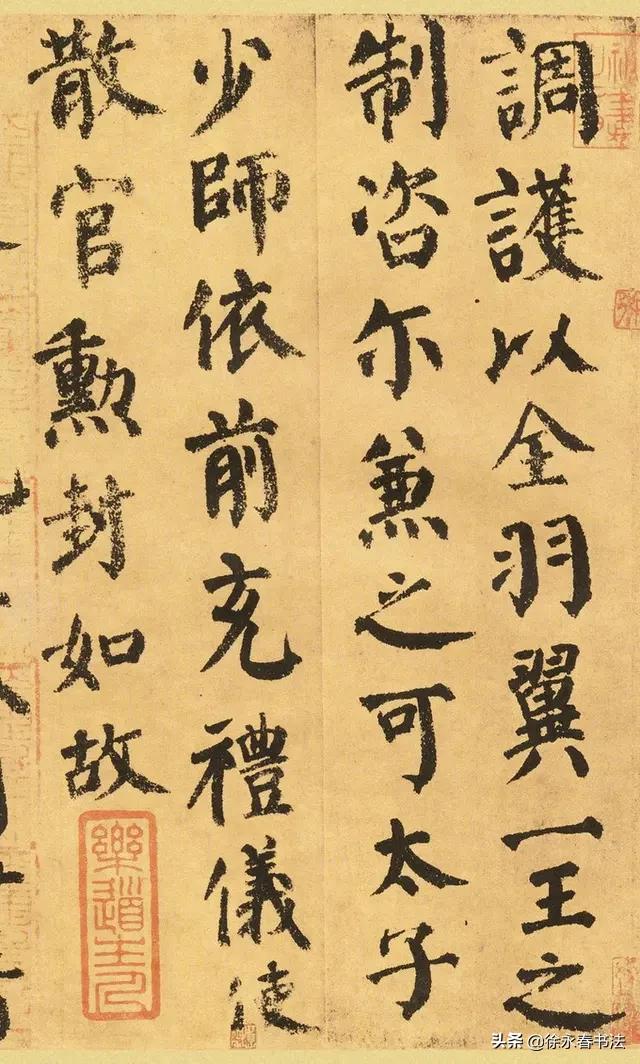 調護以全羽翼一王之
制咨尓兼之可太子
少師依前充禮儀使
散官勳封如故
樂道主人
头条 @徐永春书法